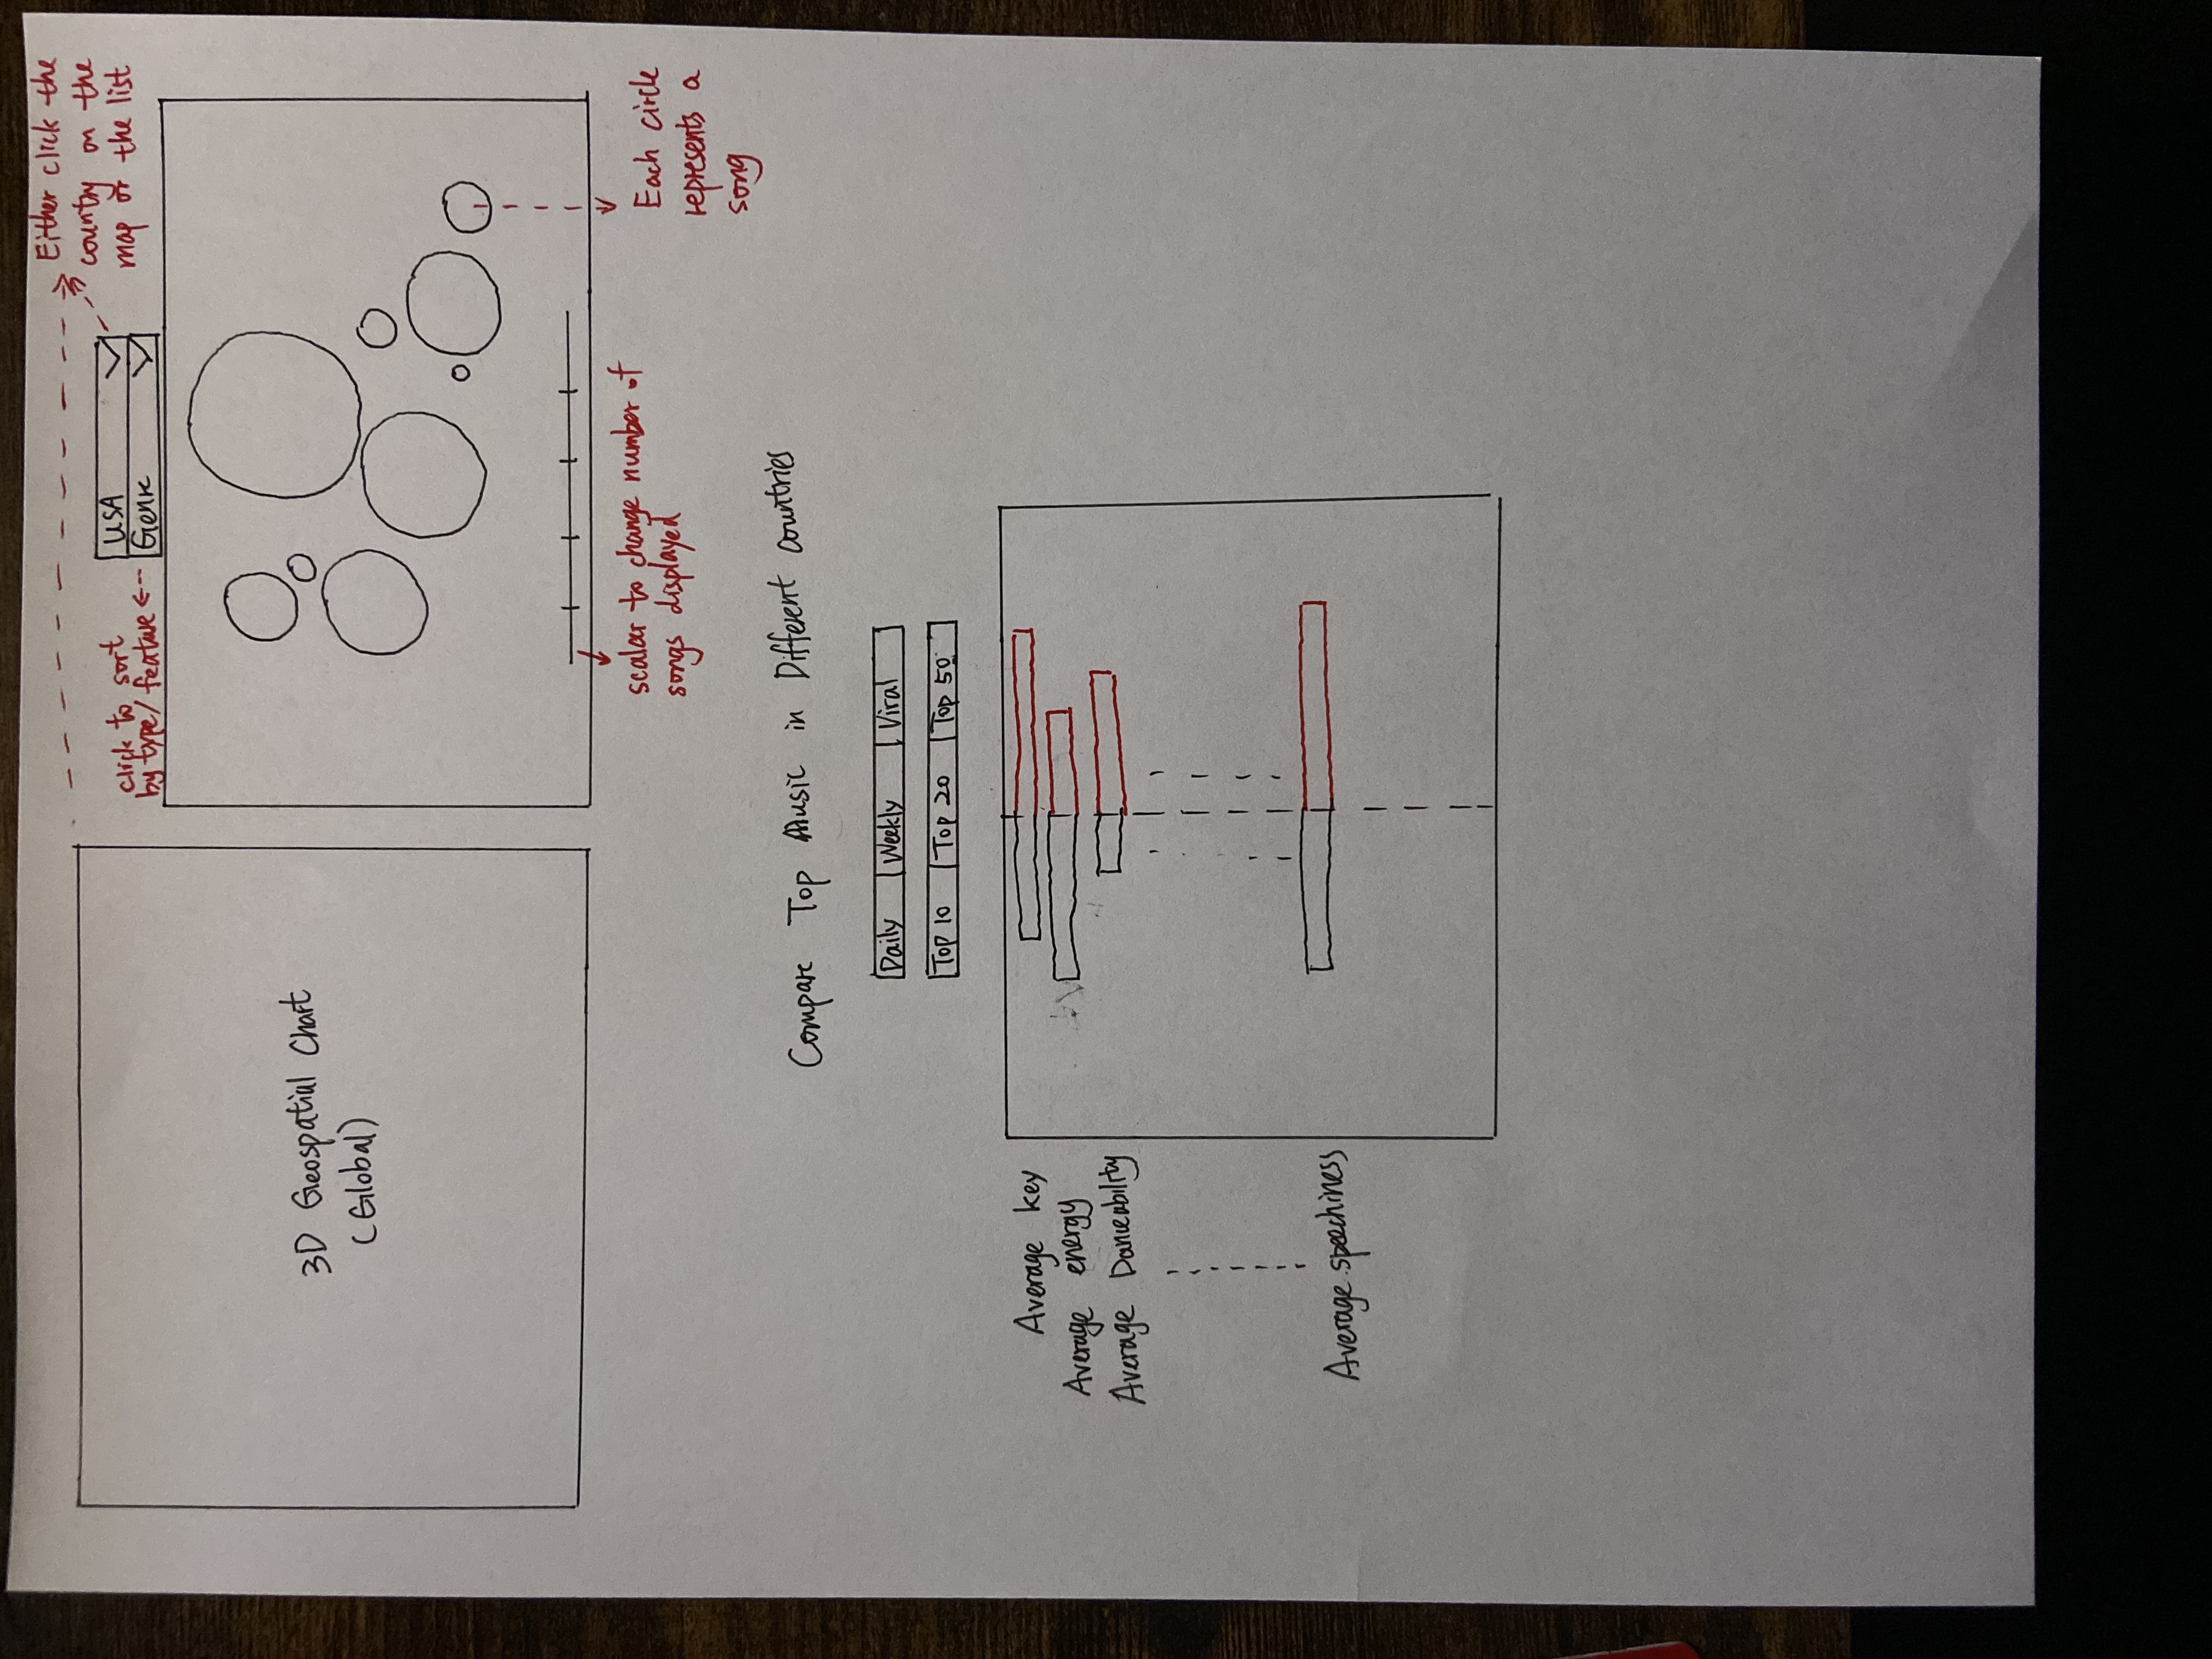 Either click the
country on the
map or the list
click to sort
by type/feature
USA
Genre
3D Geospatial Chart
(Global)
scalar to change number of
songs displayed
Each circle
represents a
song
Compare Top Music in Different Countries
Daily Weekly Viral
Top 10 Top 20 Top 50
Average key
Average energy
Average Danceability
Average speechiness